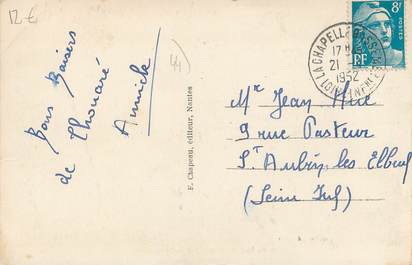 12 €
44
Bons Baisers
de Thouaré
Annick
F. Chapeau, éditeur, Nantes
8F
POSTES
RF
LA CHAPELLE BASSE-MER
17 H
21
1952
LOIRE INFRE
Mr Jean Hue
9 rue Pasteur
St Aubin les Elbeuf
(Seine Inf)